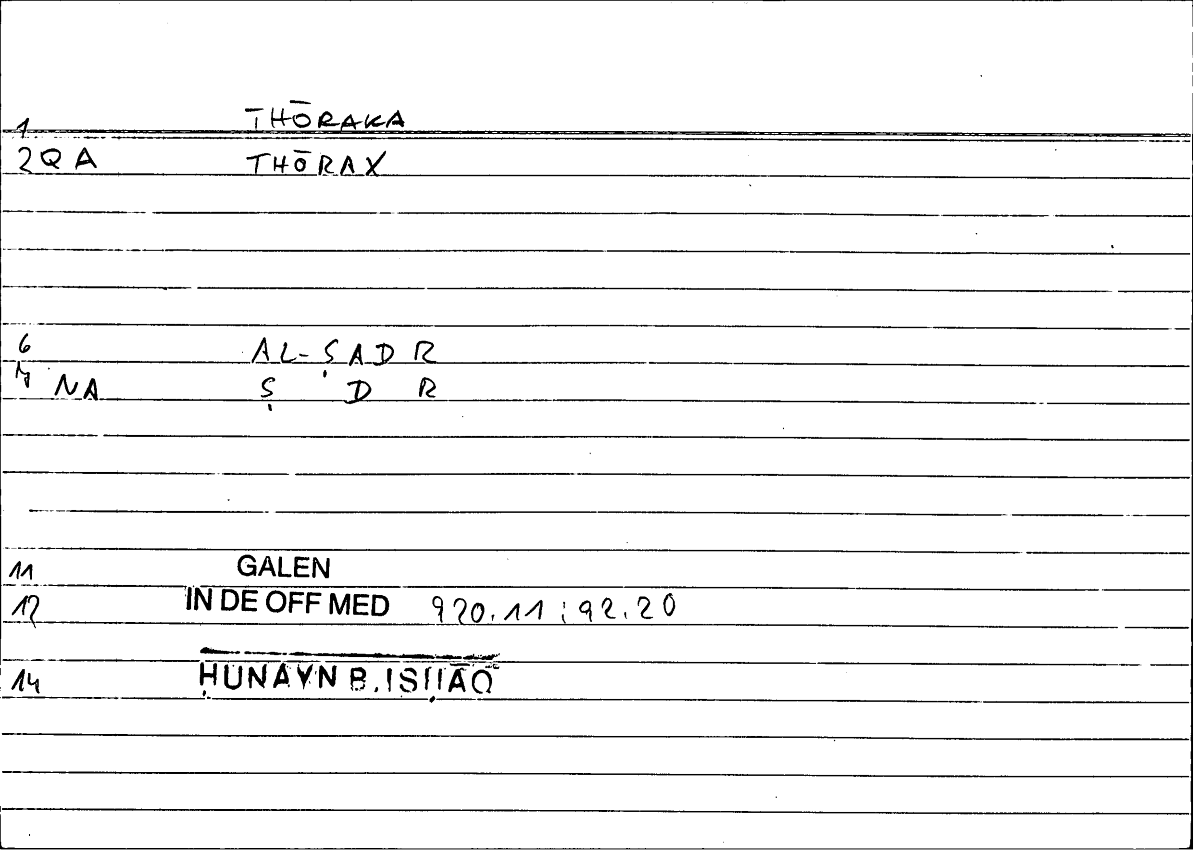 1 THŌRAKA
2 Q A THŌRAX
6 AL-ṢADR
7 NA Ṣ D R
11 GALEN
12 IN DE OFF MED 920.11; 92.20
14 ḤUNAYN B. ISḤĀQ